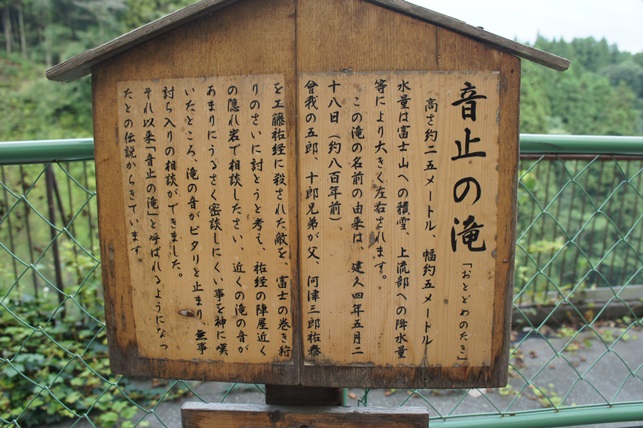 音止の滝
「おとどめのたき」
高さ約二五メートル、幅約五メートル
水量は富士山への積雪、上流部への降水量
等により大きく左右されます。
この滝の名前の由来は、建久四年五月二
十八日(約八百年前)
曾我の五郎、十郎兄弟が父、河津三郎祐泰
を工藤祐経に殺された敵を、富士の巻き狩
りのさいに討とうと考え、祐経の陣屋近く
の隠れ岩で相談したさい、近くの滝の音が
あまりにうるさく密談しにくい事を神に嘆
いたところ、滝の音がピタリと止まり、無事
討ち入りの相談ができました。
それ以来「音止の滝」と呼ばれるようになっ
たとの伝説からきています。